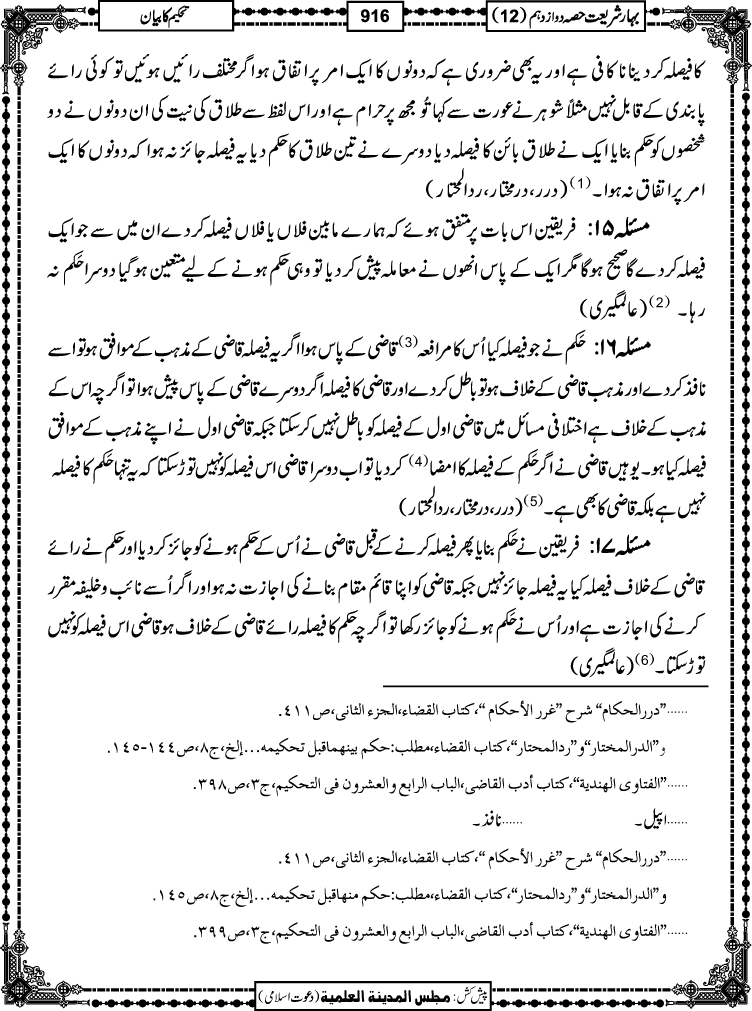 بہارِ شریعت حصہ دوازدہم (12)
916
تحکیم کا بیان
کا فیصلہ کر دینا نا کافی ہے اور یہ بھی ضروری ہے کہ دونوں کا ایک امر پر اتفاق ہوا گر مختلف رائیں ہوئیں تو کوئی رائے
پابندی کے قابل نہیں مثلاً شوہر نے عورت سے کہا تُو مجھ پر حرام ہے اور اس لفظ سے طلاق کی نیت کی ان دونوں نے دو
شخصوں کو حکم بنایا ایک نے طلاق بائن کا فیصلہ دیا دوسرے نے تین طلاق کا حکم دیا یہ فیصلہ جائز نہ ہوا کہ دونوں کا ایک
امر پر اتفاق نہ ہوا۔(1) (درر، درمختار، ردالمحتار)
مسئلہ ۱۵: فریقین اس بات پر متفق ہوئے کہ ہمارے مابین فلاں یا فلاں فیصلہ کر دے ان میں سے جو ایک
فیصلہ کر دے گا صحیح ہوگا مگر ایک کے پاس انھوں نے معاملہ پیش کر دیا تو وہی حکم ہونے کے لیے متعین ہوگیا دوسرا حَکم نہ
رہا۔ (2) (عالمگیری)
مسئلہ ۱۶: حَکم نے جو فیصلہ کیا اُس کا مرافعہ(3) قاضی کے پاس ہوا اگر یہ فیصلہ قاضی کے مذہب کے موافق ہو تو اسے
نافذ کر دے اور مذہب قاضی کے خلاف ہو تو باطل کر دے اور قاضی کا فیصلہ اگر دوسرے قاضی کے پاس پیش ہوا تو اگرچہ اس کے
مذہب کے خلاف ہے اختلافی مسائل میں قاضی اول کے فیصلہ کو باطل نہیں کرسکتا جبکہ قاضی اول نے اپنے مذہب کے موافق
فیصلہ کیا ہو۔ یوہیں قاضی نے اگر حَکم کے فیصلہ کا امضا(4) کر دیا تو اب دوسرا قاضی اس فیصلہ کو نہیں توڑ سکتا کہ یہ تنہا حَکم کا فیصلہ
نہیں ہے بلکہ قاضی کا بھی ہے۔(5) (درر، درمختار، ردالمحتار)
مسئلہ ۱۷: فریقین نے حَکم بنایا پھر فیصلہ کرنے کے قبل قاضی نے اُس کے حکم ہونے کو جائز کر دیا اور حکم نے رائے
قاضی کے خلاف فیصلہ کیا یہ فیصلہ جائز نہیں جبکہ قاضی کو اپنا قائم مقام بنانے کی اجازت نہ ہو اور اگر اُسے نائب و خلیفہ مقرر
کرنے کی اجازت ہے اور اُس نے حَکم ہونے کو جائز رکھا تو اگرچہ حکم کا فیصلہ رائے قاضی کے خلاف ہو قاضی اس فیصلہ کو نہیں
توڑ سکتا۔(6) (عالمگیری)
......”دررالحکام“ شرح ”غرر الأحکام“، کتاب القضاء، الجزء الثانی، ص٤١١.
و”الدرالمختار“و”ردالمحتار“، کتاب القضاء، مطلب: حکم بینھما قبل تحکیمہ...إلخ، ج٨، ص١٤٤-١٤٥.
......”الفتاوی الھندیة“، کتاب أدب القاضی، الباب الرابع والعشرون فی التحکیم، ج٣، ص٣٩٨.
......اپیل۔ ......نافذ۔
......”دررالحکام“ شرح ”غرر الأحکام“، کتاب القضاء، الجزء الثانی، ص٤١١.
و”الدرالمختار“و”ردالمحتار“، کتاب القضاء، مطلب: حکم منھا قبل تحکیمہ...إلخ، ج٨، ص١٤٥.
......”الفتاوی الھندیة“، کتاب أدب القاضی، الباب الرابع والعشرون فی التحکیم، ج٣، ص٣٩٩.
پیش کش: مجلس المدینة العلمیة (دعوتِ اسلامی)